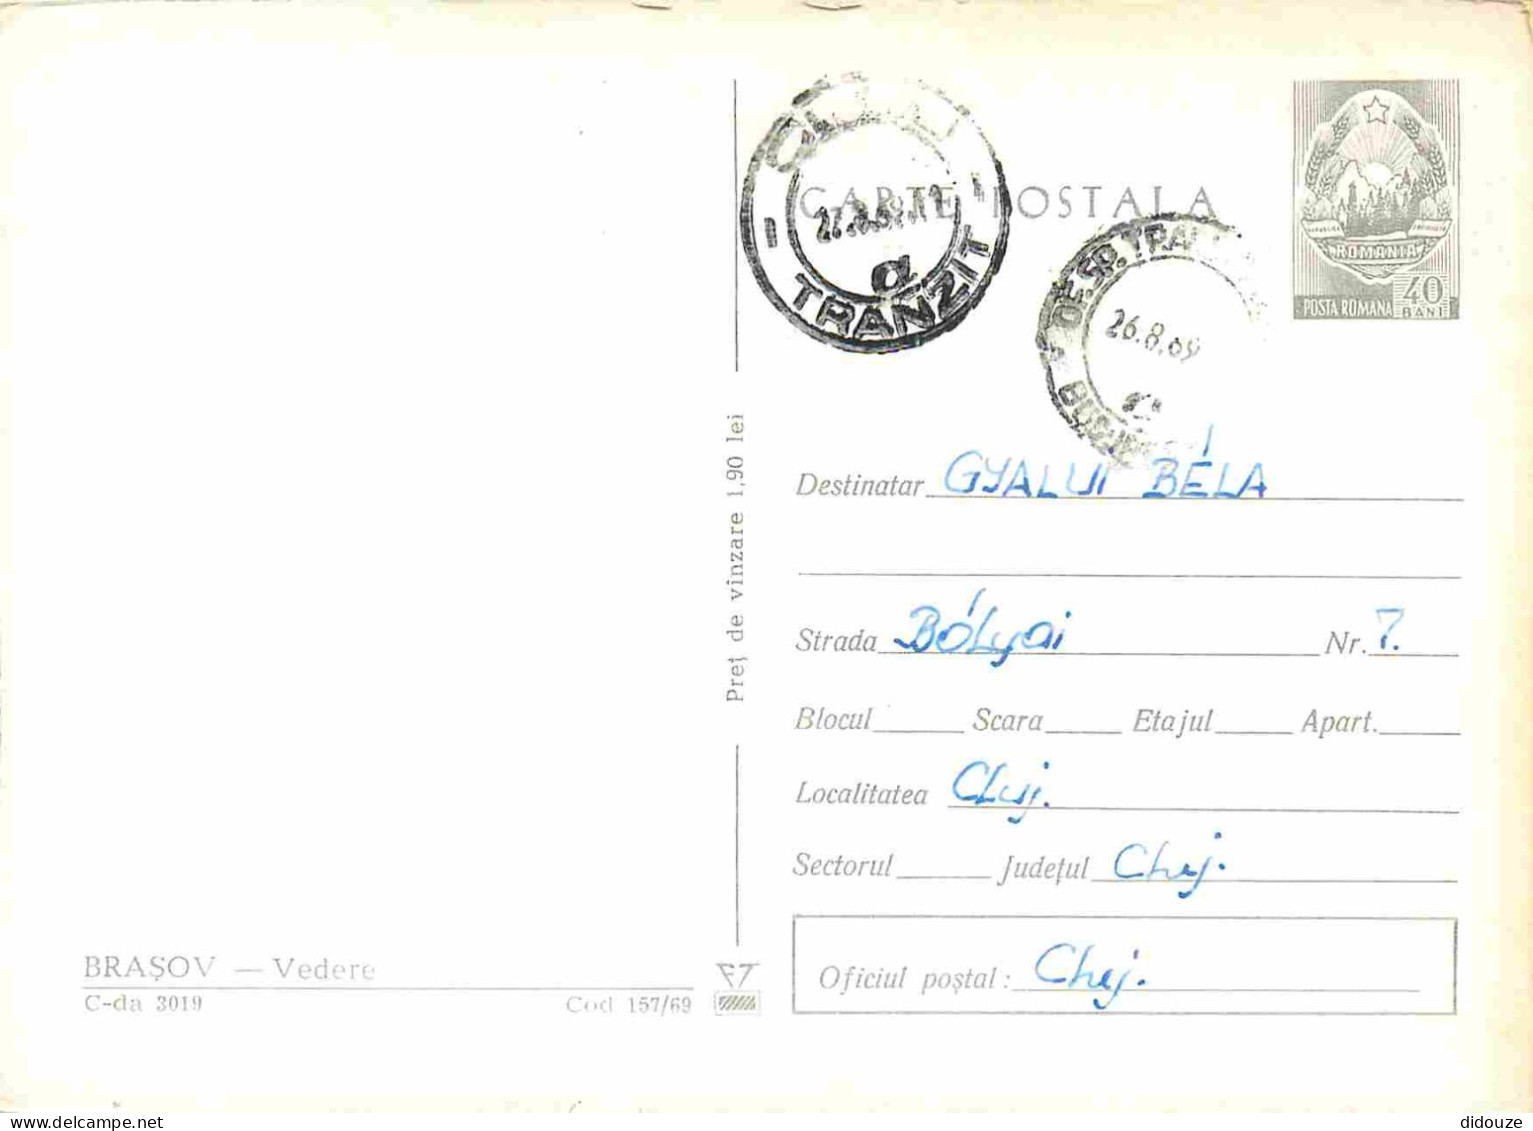 CLUJ
TRANZIT
27.8.69.11
a
CARTE POSTALA
OF.SP.TRAN
26.8.69
ROMÂNIA
POSTA ROMANA 40
BANI
Destinatar GYALUI BÉLA
Strada BÓLyai Nr. 7.
Blocul Scara Etajul Apart.
Localitatea Cluj.
Sectorul Județul Cluj.
Oficiul poștal: Cluj.
Preț de vînzare 1,90 lei
BRAȘOV — Vedere
C-da 3019 Cod 157/69
www.delcampe.net
didouze